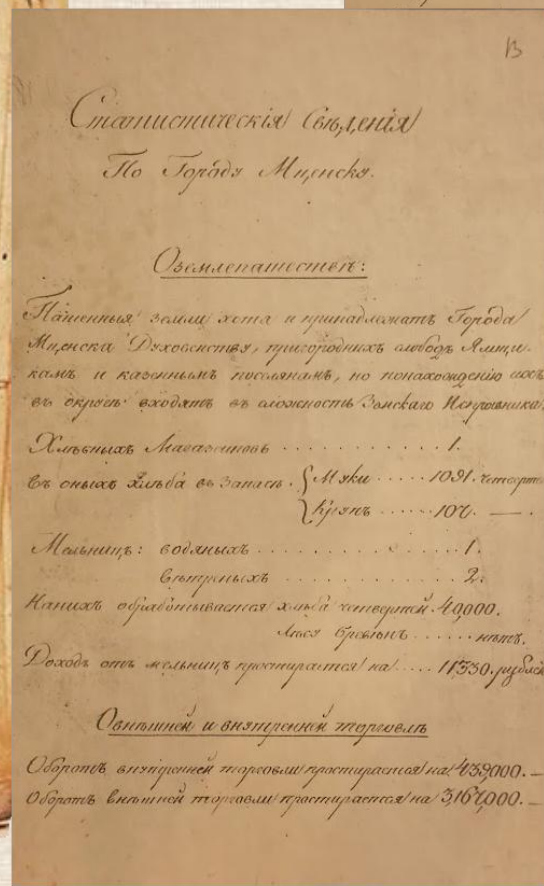 13
Статистическія Свѣденія
По Городу Мценску.
О землепашествѣ:
Пашенныя земли хотя и принадлежатъ Города
Мценска Духовенству, пригородныхъ слободъ Ямщи-
камъ и казеннымъ поселянамъ, но понахожденію ихъ
въ округѣ входятъ въ сложность Земскаго Исправника.
Хлѣбныхъ Магазиновъ . . . . . . . . . . . . 1.
Въ оныхъ хлѣба въ Запасѣ. { Муки ..... 1091. четверт
{ Крупъ ..... 107. — .
Мельницъ: водяныхъ . . . . . . . . . . . . 1.
вѣтреныхъ . . . . . . . . . . . . 2.
На нихъ обработывается хлѣба четвертей. 40,000.
Лѣса бревенъ ...... нѣтъ.
Доходъ отъ мельницъ простирается на .... 11,330. рублей
О внѣшней и внутренней торговлѣ
Оборотъ внутренней торговли простирается на 439,000. —
Оборотъ внѣшней торговли простирается на 3,167,000. —